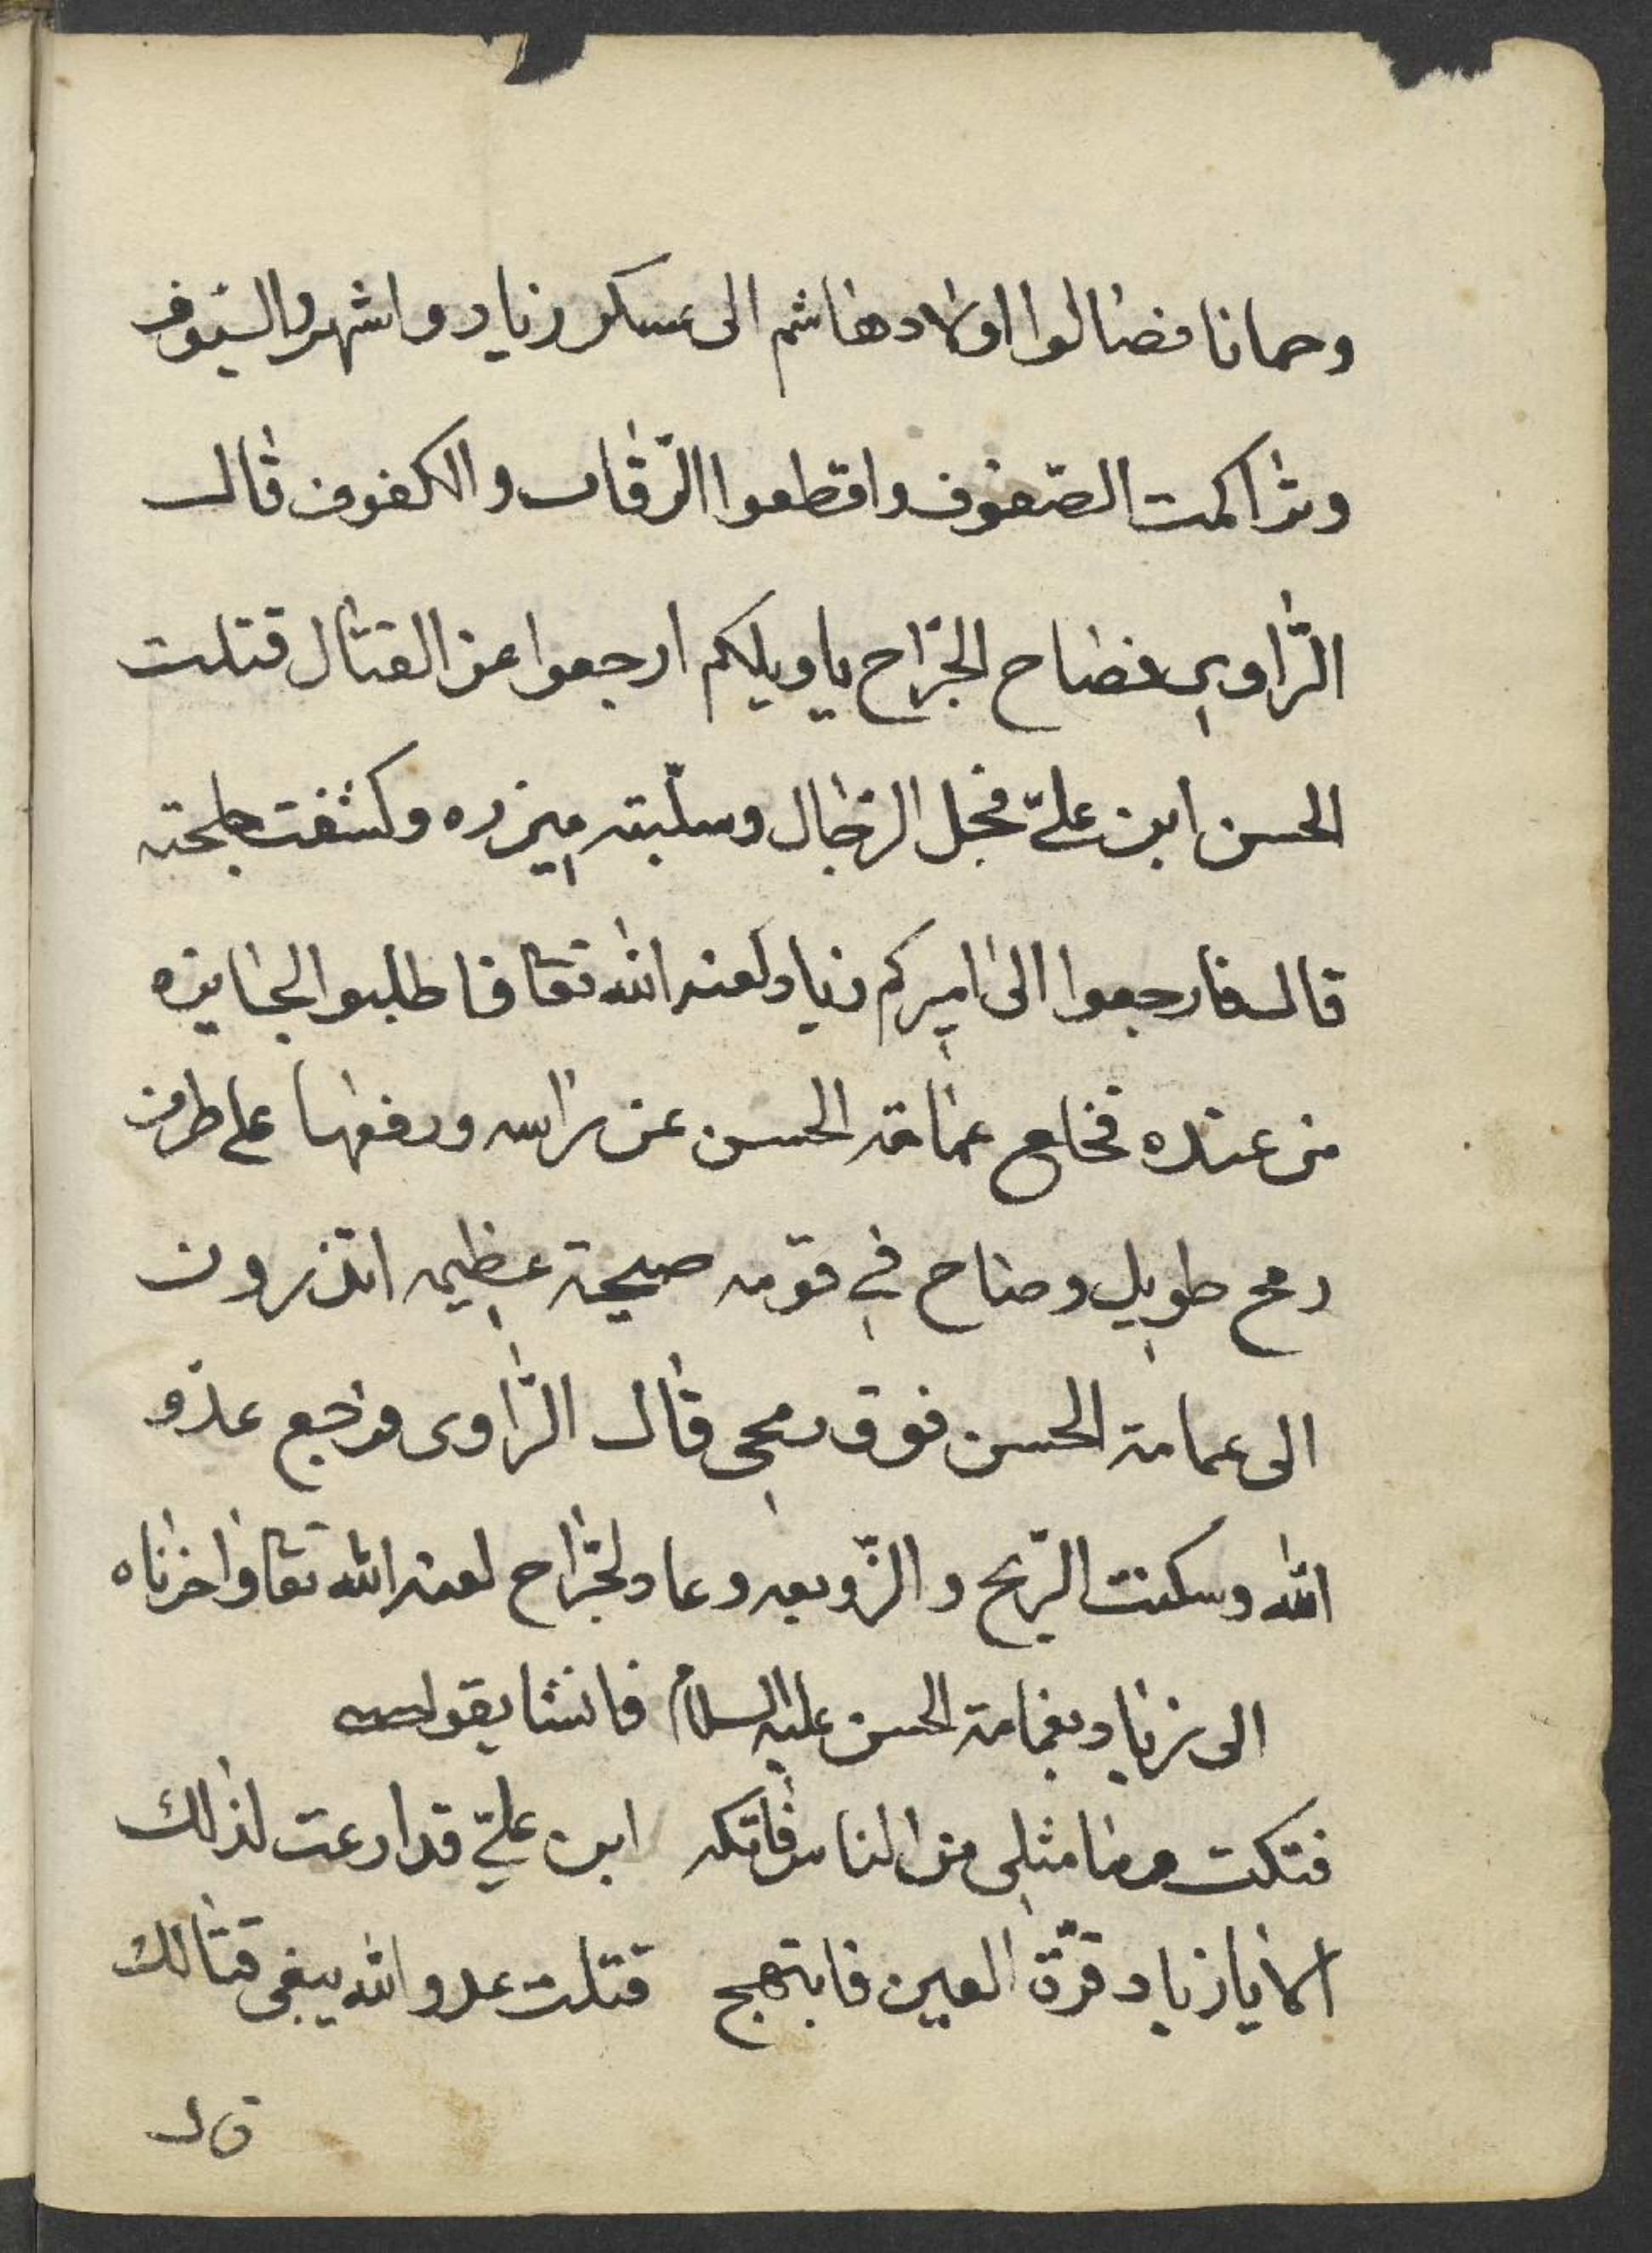 وحمانا فصالوا اولاد هاشم الى عسكر زياد واشهروا السيوف
وتراكمت الصّفوف واقطعوا الرّقاب والكفوف قال
الرّاوي فصاح الجرّاح يا ويلكم ارجعوا عن القتال قتلت
الحسن ابن عليّ مخجل الرجال وسلّبته ميزره وكشفت
قال فارجعوا الى اميركم زياد لعنه الله تعا فاطلبوا الجايزه
من عنده فخلع عمامة الحسن عن راسه ورفعها على طرف
رمح طويل وصاح في قومه صيحة عظيمه اتنزرون
الى عمامة الحسن فوق رمحي قال الرّاوى فرجع عدّو
الله وسكنت الرّيح والزّوبعه وعاد الجرّاح لعنه الله تعا واخزاه
الى زياد بعمامة الحسن عليه السلام فانشا يقول
فتكت وما مثلي من الناس فاتكه ابن عليّ قد ارعت لذلك
الا يا زياد قرّة العين فابتهج قتلت عدو الله يبغى قتالك
قال